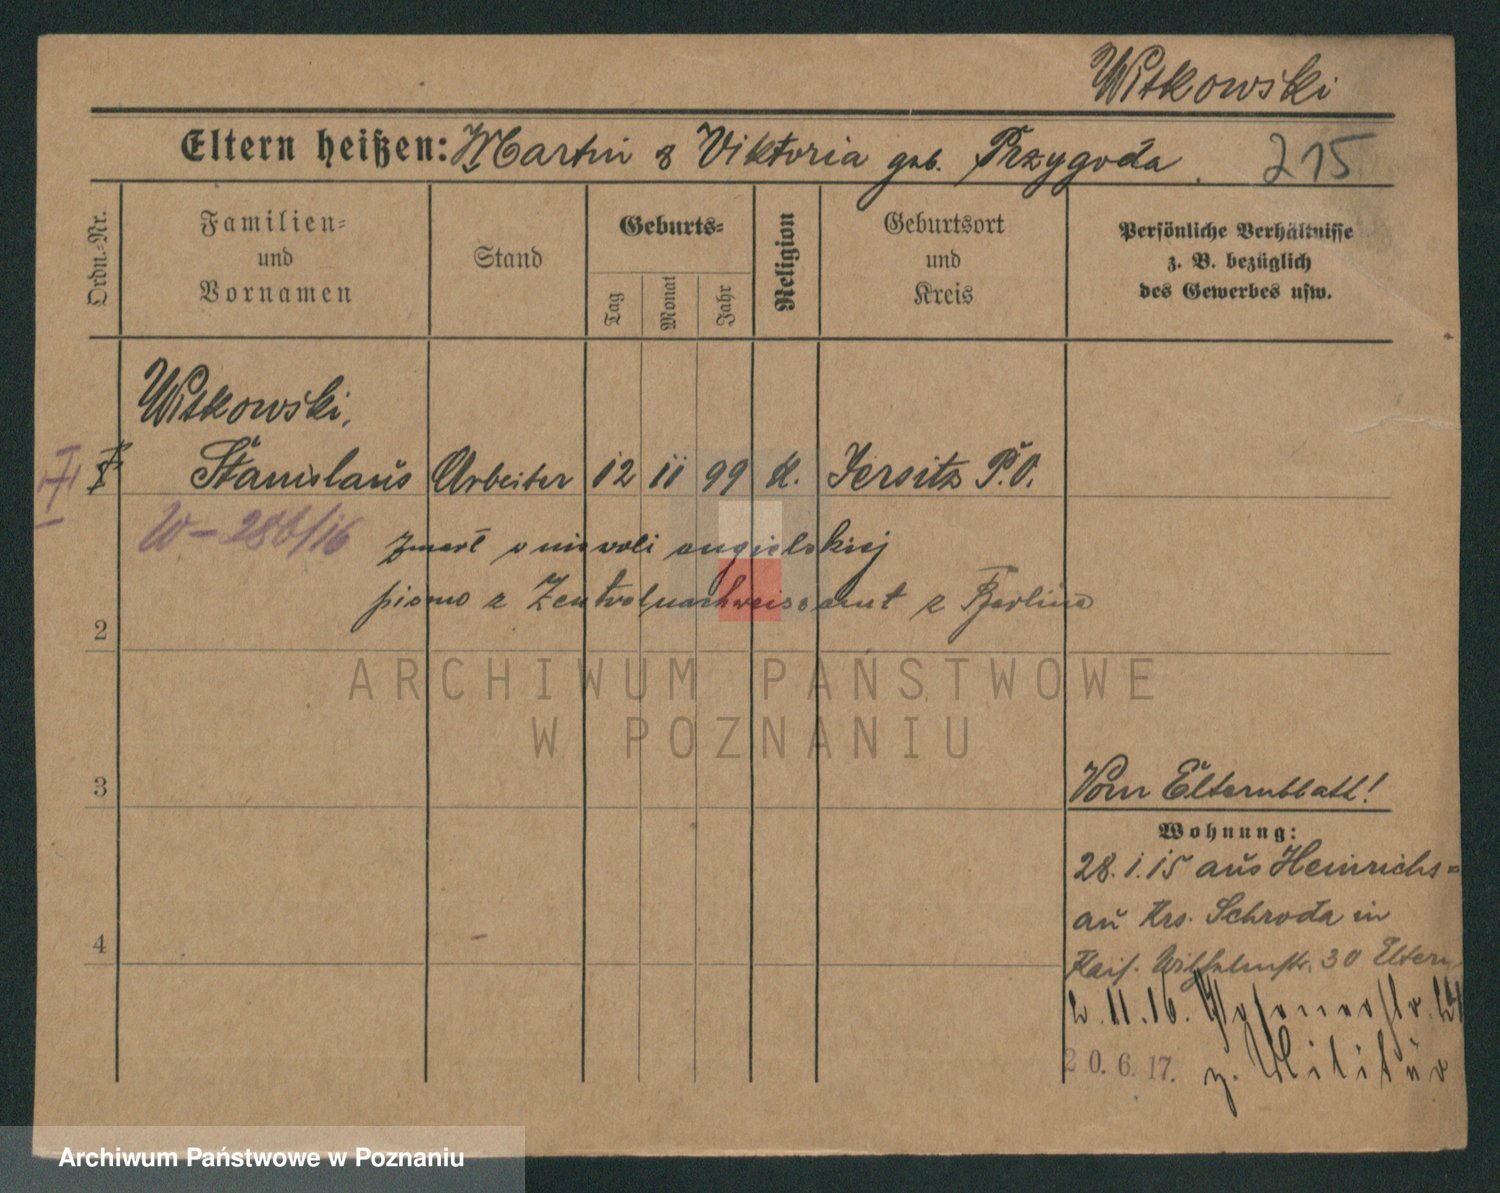 Witkowski
Eltern heißen: Martin & Viktoria geb. Przygoda. 215
Ordn.-Nr.
Familien- und Vornamen
Stand
Geburts-
Tag
Monat
Jahr
Religion
Geburtsort und Kreis
Persönliche Verhältnisse z. B. bezüglich des Gewerbes usw.
Witkowski,
Stanislaus Arbeiter 12 11 99 K. Jersitz P.O.
W-286/16
zmarł w niewoli angielskiej
pismo z Zentralnachweisamt z Berlina
2
ARCHIWUM PAŃSTWOWE
W POZNANIU
3
Vom Elternblatt!
Wohnung:
28.1.15 aus Heinrichs-
au Krs. Schroda in
4
Kais. Wilhelmstr. 30 Eltern
2.11.16.
20.6.17. z. Militär
Archiwum Państwowe w Poznaniu